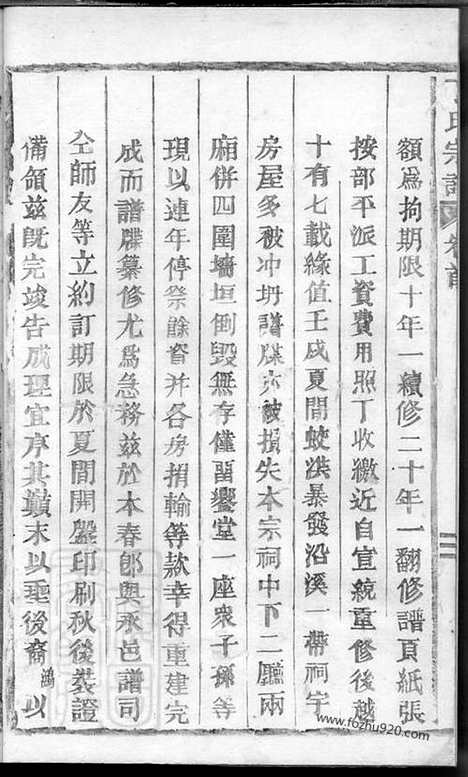 額爲拘期限十年一續修二十年一翻修譜頁紙張
按部平派工資費用照丁收繳近自宣統重修後越
十有七載緣值壬戌夏間蛟洪暴發沿溪一帶祠宇
房屋多被冲坍譜牒亦被損失本宗祠中下二廳兩
廂併四圍墻垣倒毀無存僅畱饗堂一座衆子孫等
現以連年停祭餘資并各房捐輸等款幸得重建完
成而譜牒纂修尤爲急務茲於本春郎與永邑譜司
仝師友等立約訂期限於夏間開盤印刷秋後裝證
備領茲旣完竣告成理宜序其巔末以垂後裔鴻以
氏宗譜
卷首
www.fozhu920.com